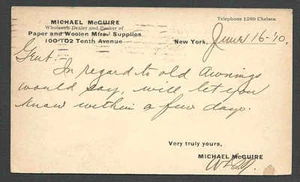 Telephone 1289 Chelsea
MICHAEL McGUIRE
Wholesale Dealer and Packer of
Paper and Woolen Mfrs' Supplies
100-102 Tenth Avenue
New York, June 16-10.
Gent:-
In regard to old Awnings
would say, will let you
know within a few days.
Very truly yours,
MICHAEL McGUIRE